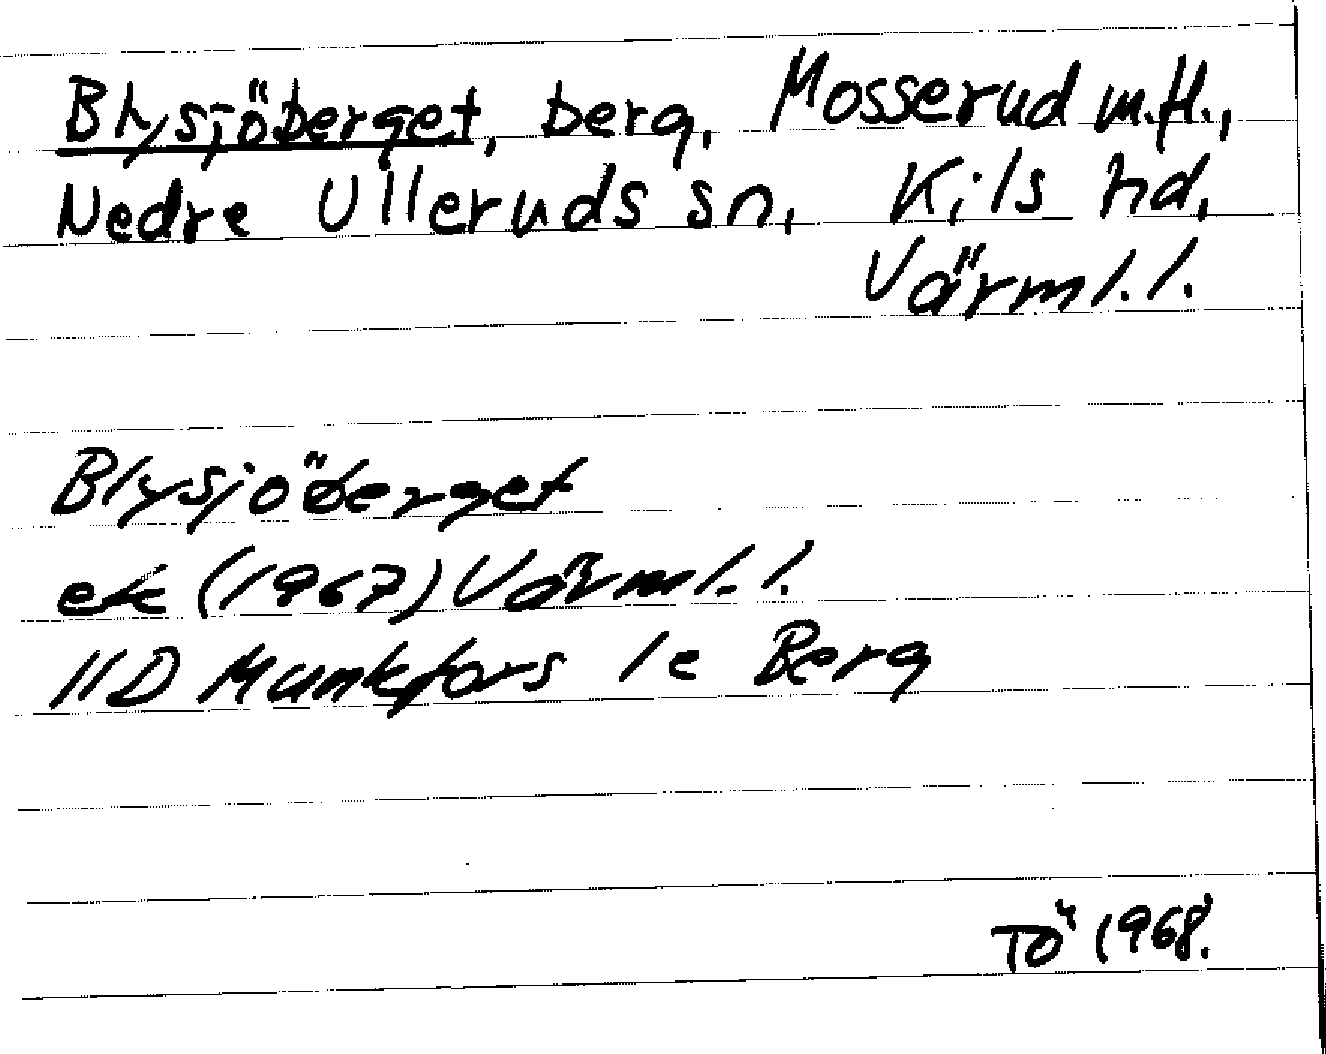 Blysjöberget, berg, Mosserud m.fl.,
Nedre Ulleruds sn, Kils hd,
Värml. l.
Blysjöberget
ek (1967) Värml. l.
11D Munkfors 1c Berg
TÖ 1968.